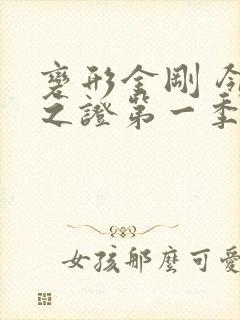 變形金剛 領
之證第一季
女孩那麼可愛